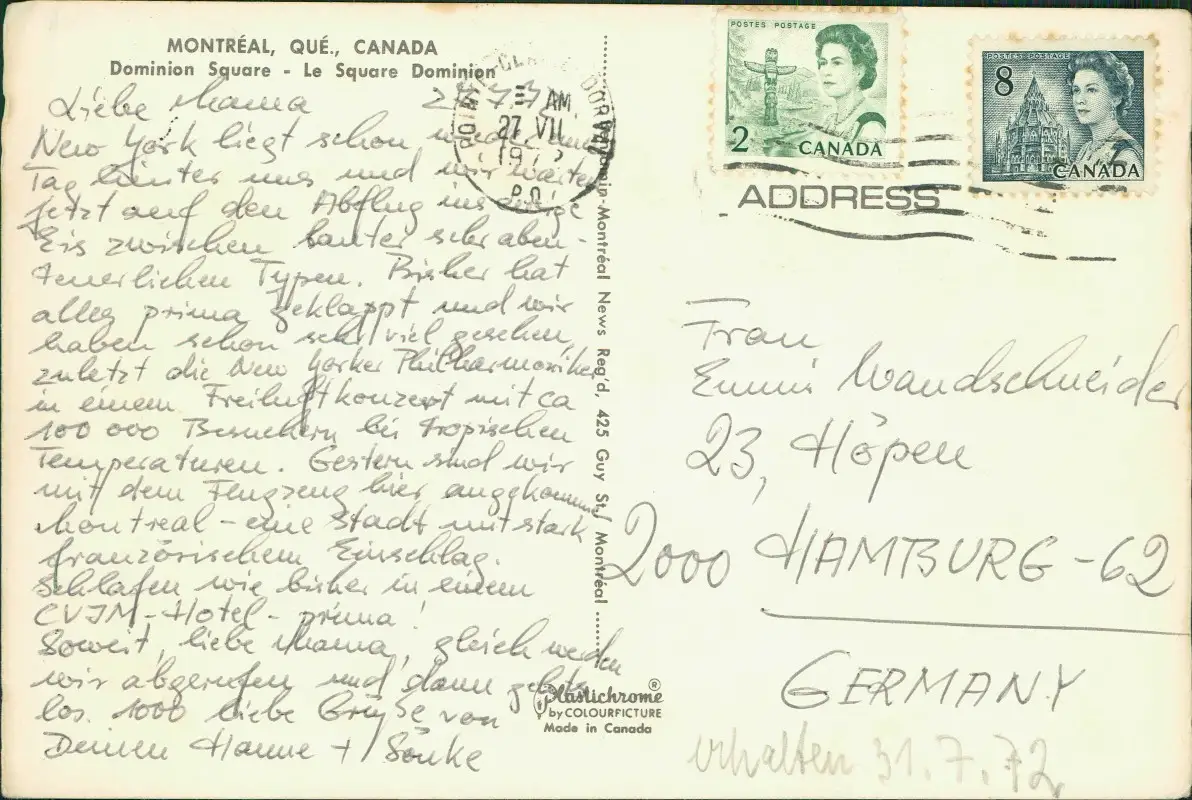 MONTRÉAL, QUÉ., CANADA
Dominion Square - Le Square Dominion
Liebe Mama
New York liegt schon wieder
Tag hinter uns und wir warten
jetzt auf den Abflug ins ewige
Eis zwischen lauter sehr aben-
teuerlichen Typen. Bisher hat
alles prima geklappt und wir
haben schon sehr viel gesehen,
zuletzt die New Yorker Philharmoniker
in einem Freiluftkonzert mit ca
100 000 Besuchern bei tropischen
Temperaturen. Gestern sind wir
mit dem Flugzeug hier angekommen
Montreal - eine Stadt mit stark
französischem Einschlag.
Schlafen wie bisher in einem
CVJM-Hotel - prima!
Soweit, liebe Mama, gleich werden
wir abgerufen und dann gehts
los. 1000 liebe Grüße von
Deinen Hanne + Sönke
AM
27 VII
197
P.Q.
Benjamin-Montréal News Reg'd, 425 Guy St., Montréal
Plastichrome ®
by COLOURPICTURE
Made in Canada
POSTES POSTAGE
2
CANADA
POSTES POSTAGE
8
CANADA
ADDRESS
Frau
Emmi Wandschneider
23, Höpen
2000 HAMBURG-62
GERMANY
erhalten 31.7.72